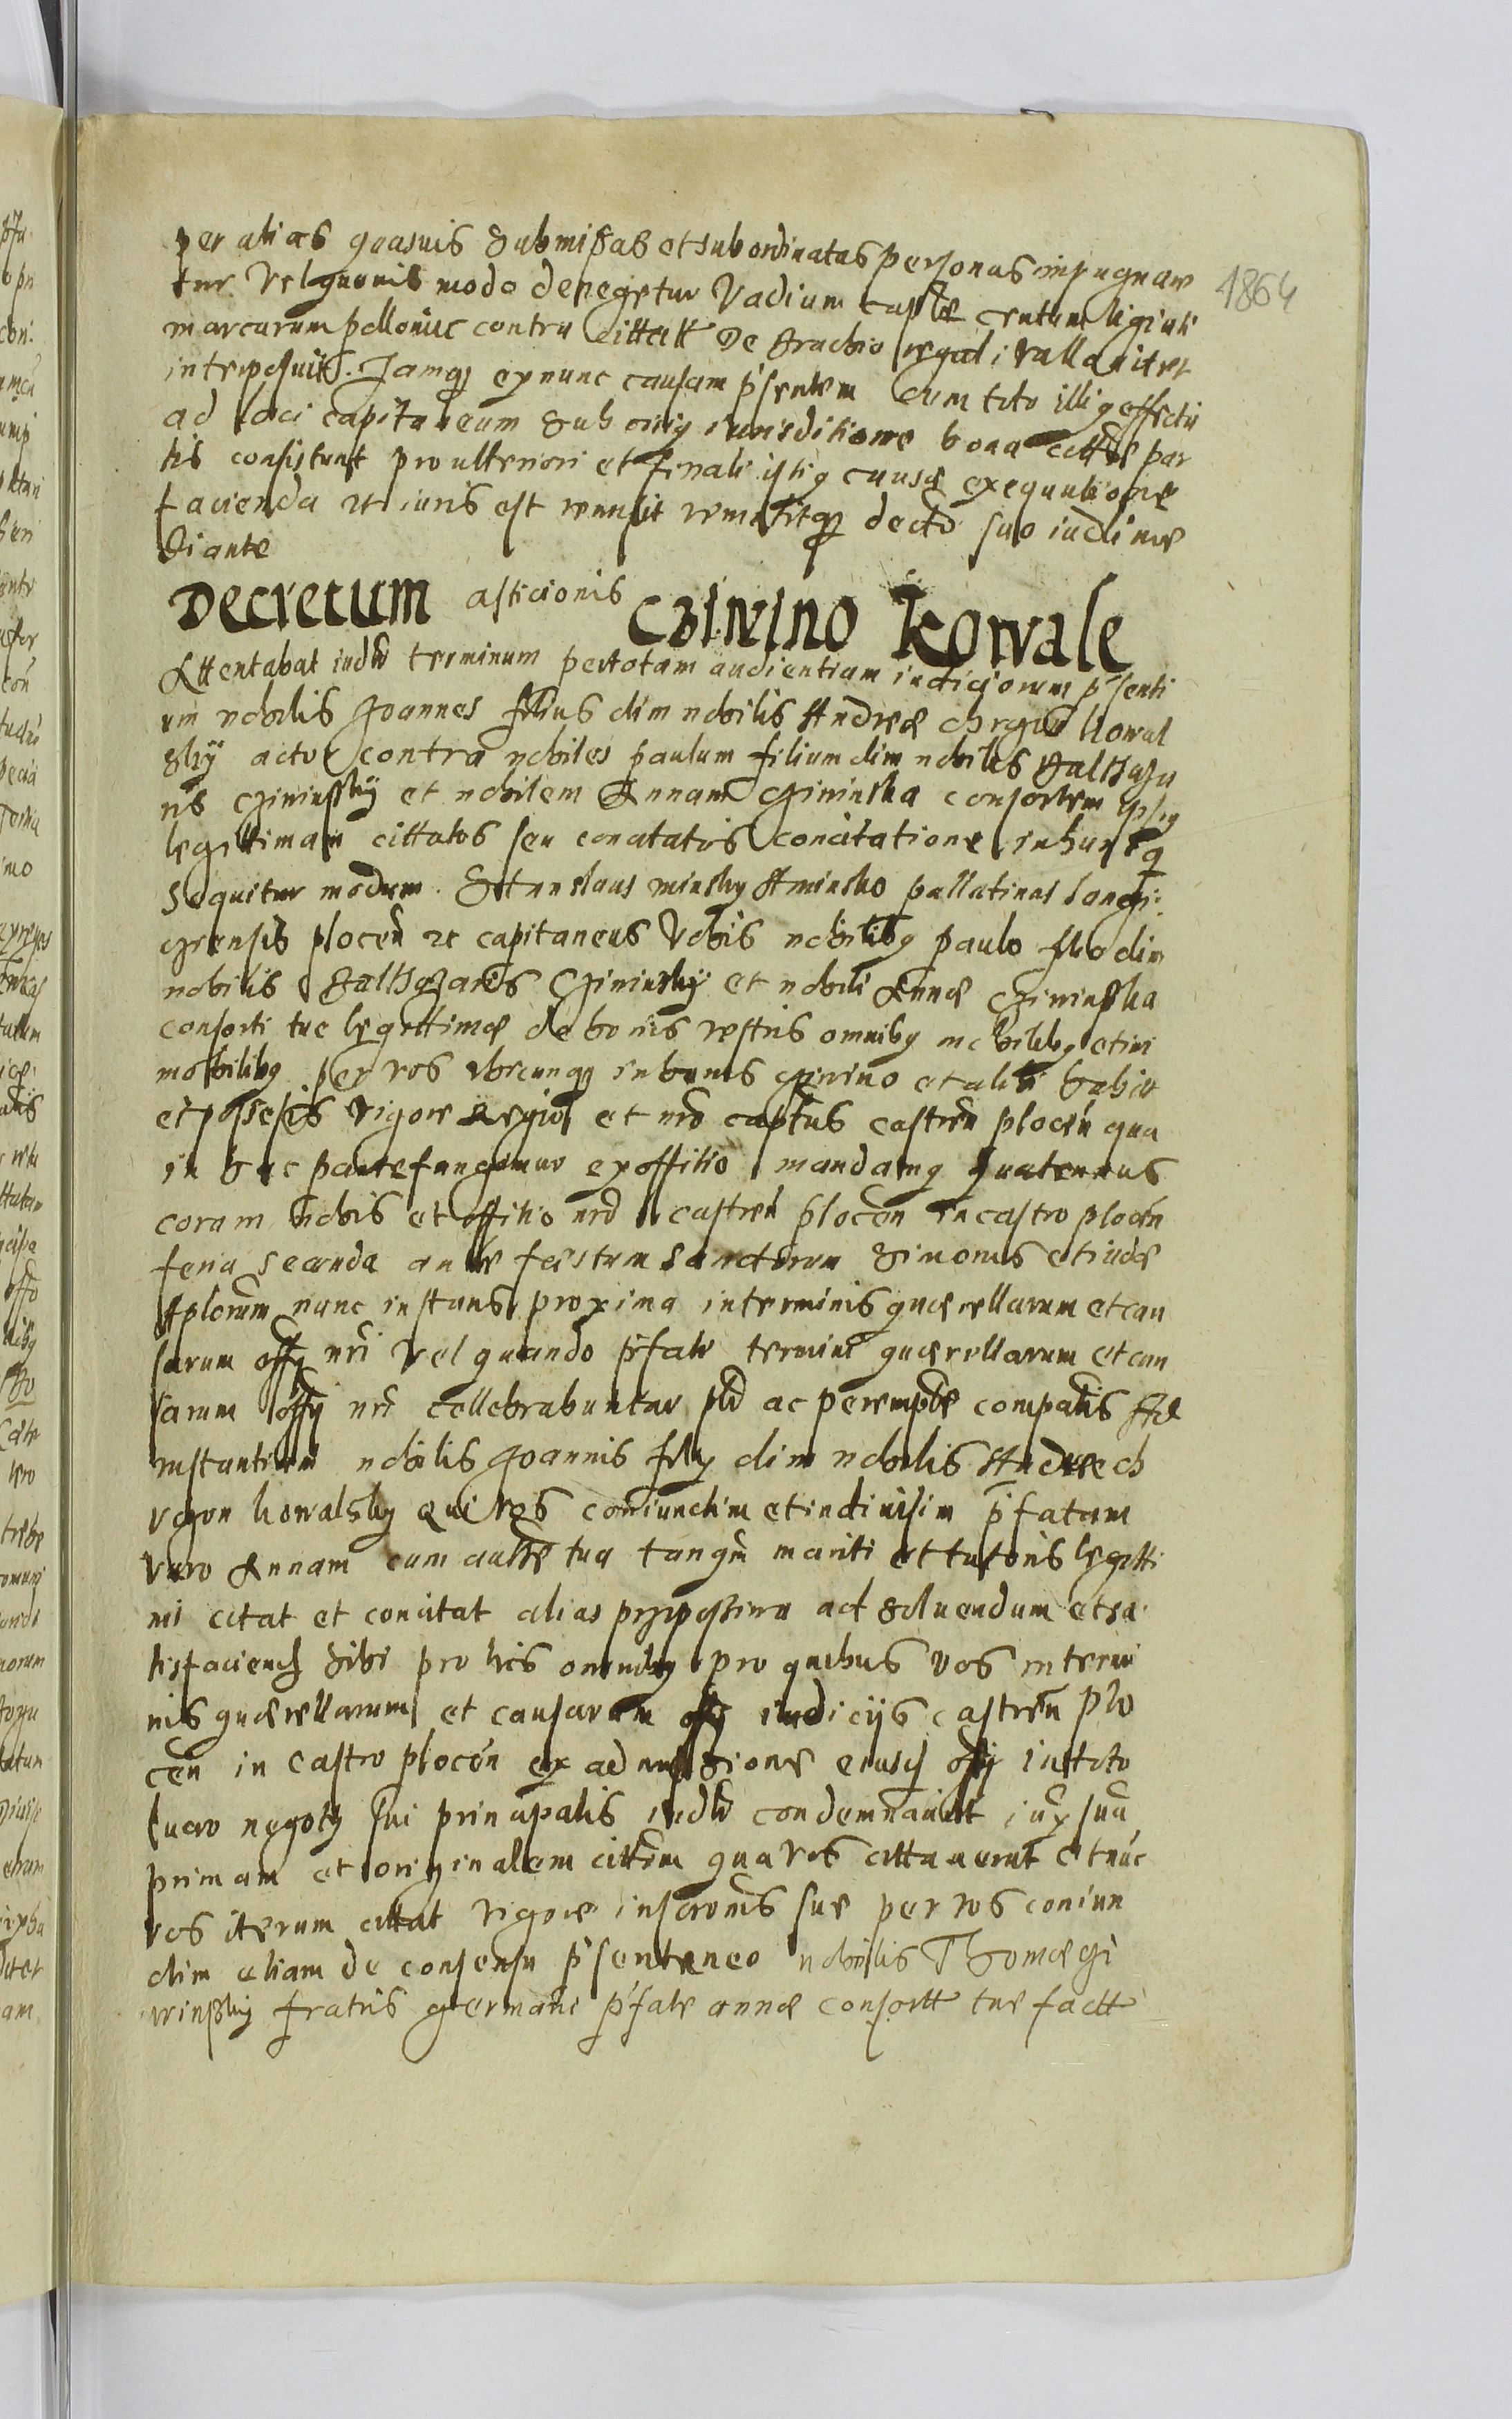 per alias quasuis submissas et subordinatas personas impugnare
tur Vel quouis modo denegetur Vadium caste centum
1864
marcarum pollonic contra cittatt De brachio regali
interposuit. Jamq ex nunc causam p'sentem cum toto illiq effectu
ad loci capitaneum sub cuiq iurisditione bona par
tis consistunt pro ulteriori et finali istiq causæ exequutione
facienda ut iuris est remisit remittitqz decto suo iudi me
diante
Decretum asticionis Cziwino Kowale
Attentabat iudtr terminum per totam audientiam iudiciorum p'senti
um nobilis Joannes filius olim nobilis Andreæ Kowal
skij actor contra nobiles paulum filium olim nobilis Balthaza
ris Cziwinskij et nobilem Annam cziwinska consortem ipsiq
legittimam cittatos seu concitatos concitatione in hunc q
sequitur modum. Stanislaus minsky A minsko pallatinus Lanci
czensis plocen zc capitaneus Vobis nobilibq paulo filio olim
nobilis Balthazaris Cziwinskij et nobili Annæ cziwinska
consorti tue legittimæ de bonis vestris omnibq mobilibq et im
mobilibq per vos vbicunqz in bonis cziwino et alibi habit
et possessis vigore regio et nro captus castren plocen qua
in hac parte fungimur ex offitio mandamq quatenus
coram nobis et offitio nro castren plocen in castro plocen
feria secunda ante festum sanctorum Simonis et iudæ
Aplorum nunc instans proxima in terminis quærellarum et cau
sarum offij nri Vel quando p'fate termini quærellarum et cau
sarum offij nri cellebrabuntur pld ac perempte compatis Ad
instantiam nobilis Joannis filij olim nobilis Andreæ ch
kowalsky qui vos coniunctim et indiuisim p'fatam
vero Annam cum autte tua tanqm mariti et tutoris legitti
mi citat et concitat alias ad soluendum et sa
tisfaciend sibi pro his omnibq pro quibus vos in termi
nis quærellarum et causarum offij iudiciis castren plo
cen in castro plocen ex admissione eiusd offij in toto
lucro negotij sui principalis iudtr condemnauit iux sua
primam et originalem cittem qua vos cittauerat et nuc
vos iterum cittat vigore inscronis sue per vos coniun
ctim etiam de consensu p'sentaneo nobilis Thomæ czi
winskij fratris germani p'fate annæ consortt tue factt